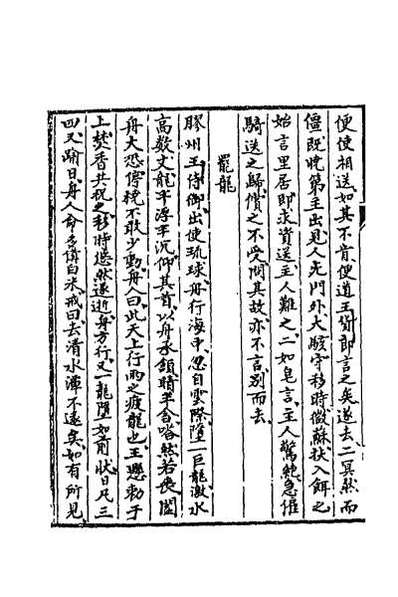 便使相送如其不肯便道王賀即言之矣遂去二冥然而
僵既曉第主出見人死門外大駭守移時微蘇扶入餌之
始言里居即求資送主人難之二如皂言主人驚絕急僱
騎送之歸償之不受問其故亦不言別而去
罷龍
膠州王侍御出使琉球舟行海中忽自雲際墮一巨龍激水
高數丈龍半浮半沉仰其首以舟承頷睛半含嗒然若喪闔
舟大恐停橈不敢少動舟人曰此天上行雨之疲龍也王懸勅于
上焚香共祝之移時悠然遂逝舟方行又一龍墮如前狀日凡三
四又踰日舟人命多備白米戒曰去清水潭不遠矣如有所見